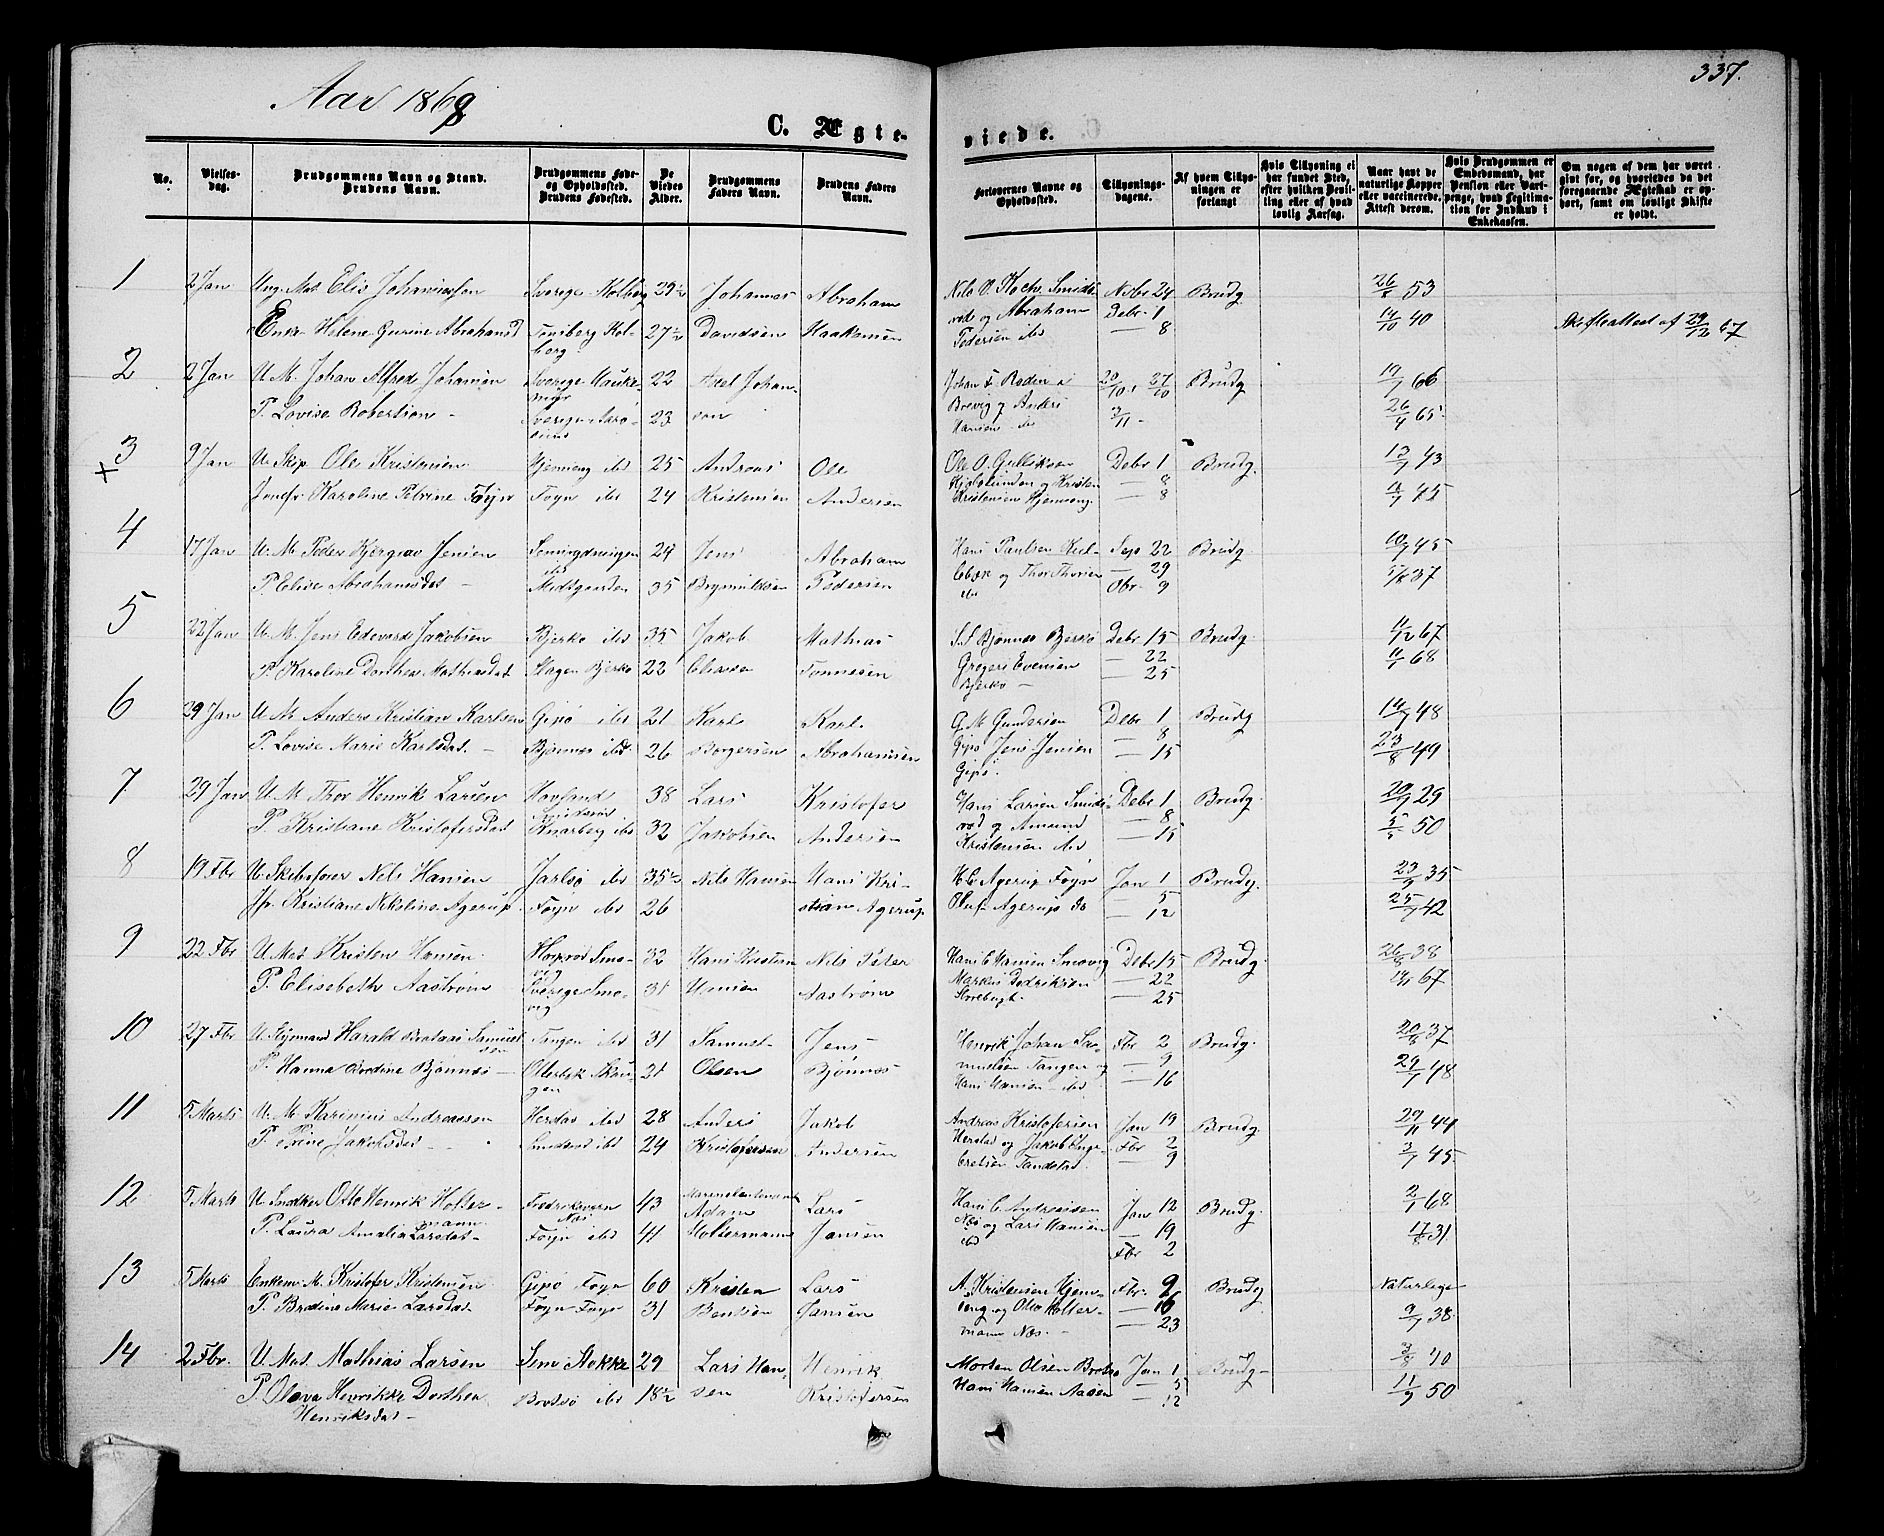 337.
Aar 1868
C. Ægte-
viede.
No.
Vielses-
dag.
Brudgommens Navn og Stand.
Brudens Navn.
Brudgommens Føde-
og Opholdssted.
Brudens Fødested.
De
Viedes
Alder.
Brudgommens
Faders Navn.
Brudens Faders
Navn.
Forlovernes Navne og
Opholdssted.
Tillysnings-
dagene.
Af hvem Tillys-
ningen er
forlangt
Hvis Tillysning ei
har fundet Sted,
efter hvilken Bevil-
ling eller af hvad
lovlig Aarsag.
Naar havt de
naturlige Kopper
eller vaccinerede.
Attest derom.
Hvis Brudgommen er
Embedsmand, har
Pension eller Vart-
penge, hvad Legitima-
tion for Indskud i
Enkekassen.
Om nogen af dem har været
gift før, og hvorledes da det
foregaaende Ægteskab er op-
hørt, samt om lovligt Skifte
er holdt.
1 2 Jan Ung. Mat. Elis Johannesson Sverige Holberg 29½ Johannes Abraham Nils O. Nobr 24 Brudg. 26/8 53
Enke Helene Gurine Abrahamsd Tønsberg Hol- 27½ Davidsen Haakonsen rød og Abraham Debr 1 14/10 40 Skifteattest af 29/12 67
borg. Pedersen ibd — 8
2 2 Jan U. M. Johan Alfred Johansen Sverige 22 Axel Johan- Johan F. Roden i 20/10 27/10 Brudg 19/1 66
P. Lovise Robertson - Sverige 23 son Brevig og Anders 3/11 - 26/4 65
Hansen ibd
3 9 Jan U. Skip. Ole Kristensen Hjemseng ibd 25 Andreas Ole Ole O. Gulliksen Debr 1 Brudg. 13/7 43
+ Jomfr. Karoline Petrine Føyn Føyn ibd 24 Kristensen Andersen og Kristen — 8 45
Kristensen Hjemseng. — 8
4 17 Jan U. M. Peder Jensen 24 Jens Abraham Hans Paulsen Sep 22 Brudg. 10/7 45
P. Elise Abrahamsdat - Midtgaarden 35 Brynnildsen Pedersen og Thor Thorsen — 29 37
ibd Obr. 9
5 22 Jan U. M. Jens Edvard Jakobsen Bjerkø ibd 35 Jakob Mathias S. S. Bjønnes Bjerkø Debr 15 Brudg 67
P. Karoline Dorthea Mathiasdat Slagen Bjerkø 22 Eliasen Tønnesen Gregers Evensen — 22 11/1 68
Bjerkø - — 25
6 29 Jan U. M. Anders Kristian Karlsen Gipø ibd 21 Karl Karl G. M. Gundersen Debr 1 Brudg 14/7 48
P. Lovise Marie Karlsdat. - Bjønnes ibd. 26 Borgersen Abrahamsen Gipø Jens Jensen — 8 23/8 49
Gipø. — 15
7 29 Jan U. M. Thor Henrik Larsen 38 Lars Kristofer Hans Larsen Smids- Debr 1 Brudg. 20/7 29
P. Kristiane Kristofersdat Knarberg ibd 32 Jakobsen Andersen rød og Amund — 8 50
Kristensen ibd — 15
8 19 Fbr U. Skibsfører Nils Hansen Jarlsø ibd 35½ Nils Hansen Hans Kri- H. C. Agerup Føyn Jan 1 Brudg. 23/9 35
Jfr. Kristiane Nikoline Agerup. Føyn ibd 26 stian Agerup Oluf Agerup do — 5 25/7 42
— 12
9 22 Fbr U. Mat. Kristen Hansen. Smø- 32 Hans Kristian Nils Peter Hans C Hansen Smøvig Debr 15 Brudg. 26/8 38
P. Elisabeth Aastrøm Sverige Smø- 31 Hansen Aastrøm Markus Dedriksen — 22 67
vig Storebugt. — 25
10 27 Fbr U. Styrmand Harald Samuel- Tangen ibd 31 Samuel Jens Henrik Johan Sa- Fbr 2 Brudg. 20/8 37
sen P. Hanna Bredine Bjønnes - Otterbek 21 Olsen Bjønnes muelsen Tangen og — 9 29/1 48
Hans Hansen ibd — 16
11 5 Marts U. M. Andreassen ibd 28 Anders Jakob Andreas Kristofersen Jan 19 Brudg 44
P. Trine Jakobsdat - ibd 24 Kristofersen Andersen og Jakob Inge- Fbr 2 3/7 45
bretsen — 9
12 5 Marts U. Snedker Otto Henrik Holter- Fredriksværn 43 Adam Lars Hans C. Andreassen Jan 12 Brudg. 2/1 68
mann. P. Laura Amalia Larsdat - Næs Føyn ibd 41 Holtermann Jansen Næs og Lars Hansen — 19 17/8 31
ibd Fbr 2
13 5 Marts Enkem. M. Kristofer Kristensen Gipø Føyn 60 Kristen Lars A. Kristensen Hjem- Fbr. 9 Brudg Naturlige
P. Bredine Marie Larsdat Føyn Føyn 31 Bentsen Jansen seng og Otto Holter- — 16 9/7 38.
mann Næs. - — 23
14 2 Fbr. U. Mat. Mathias Larsen Sem Stokke 29 Lars Han- Henrik Morten Olsen Jan 1 Brudg 3/8 40
P. Olava Henrikke Dorthea ibd 18½ sen Kristofersen Hans Hansen Aasen — 5 11/9 50
Henriksdat - — 12